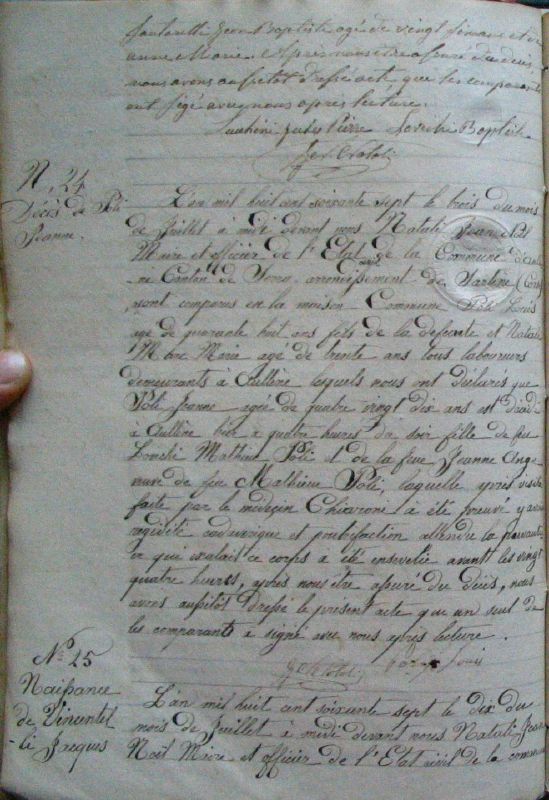 Jean Baptiste agé de vingt
anne Marie. Après nous être assuré du décès,
nous avons aussitot dressé acte, que les comparants
ont signé avec nous après lecture.
Jules Pierre Baptiste
N. 24
Décès de Poli
Jeanne.
L'an mil huit cent soixante sept le trois du mois
de Juillet à midi devant nous Natali Jean Noël
Maire et officier de l'Etat de la Commune
ne Canton de arrondissement de Sartène (Corse)
sont comparus en la maison Commune Poli Louis
agé de quarante huit ans fils de la defunte et Natali
Marie agé de trente ans tous laboureurs
demeurants à Aullène lesquels nous ont déclarés que
Poli Jeanne agée de quatre vingt dix ans est décédé
à Aullène hier à quatre heures du soir fille de feu
Mathieu Poli et de la feue Jeanne
de feu Mathieu Poli, laquelle après visite
faite par le médecin Chiaroni à été prouvé y avoir
regidité cadaverique et putrefaction attendu la puanteur
qui exalait ce corps a été ensevelie avant les vingt
quatre heures, après nous être assuré du décès, nous
avons aussitôt dressé le present acte que un seul de
les comparants à signé avec nous après lecture.
Louis
N° 25
Naissance
de Vincentel
-li Jacques
L'an mil huit cent soixante sept le dix du
mois de Juillet à midi devant nous Natali Jean
Noël Maire et officier de l'Etat civil de la commune